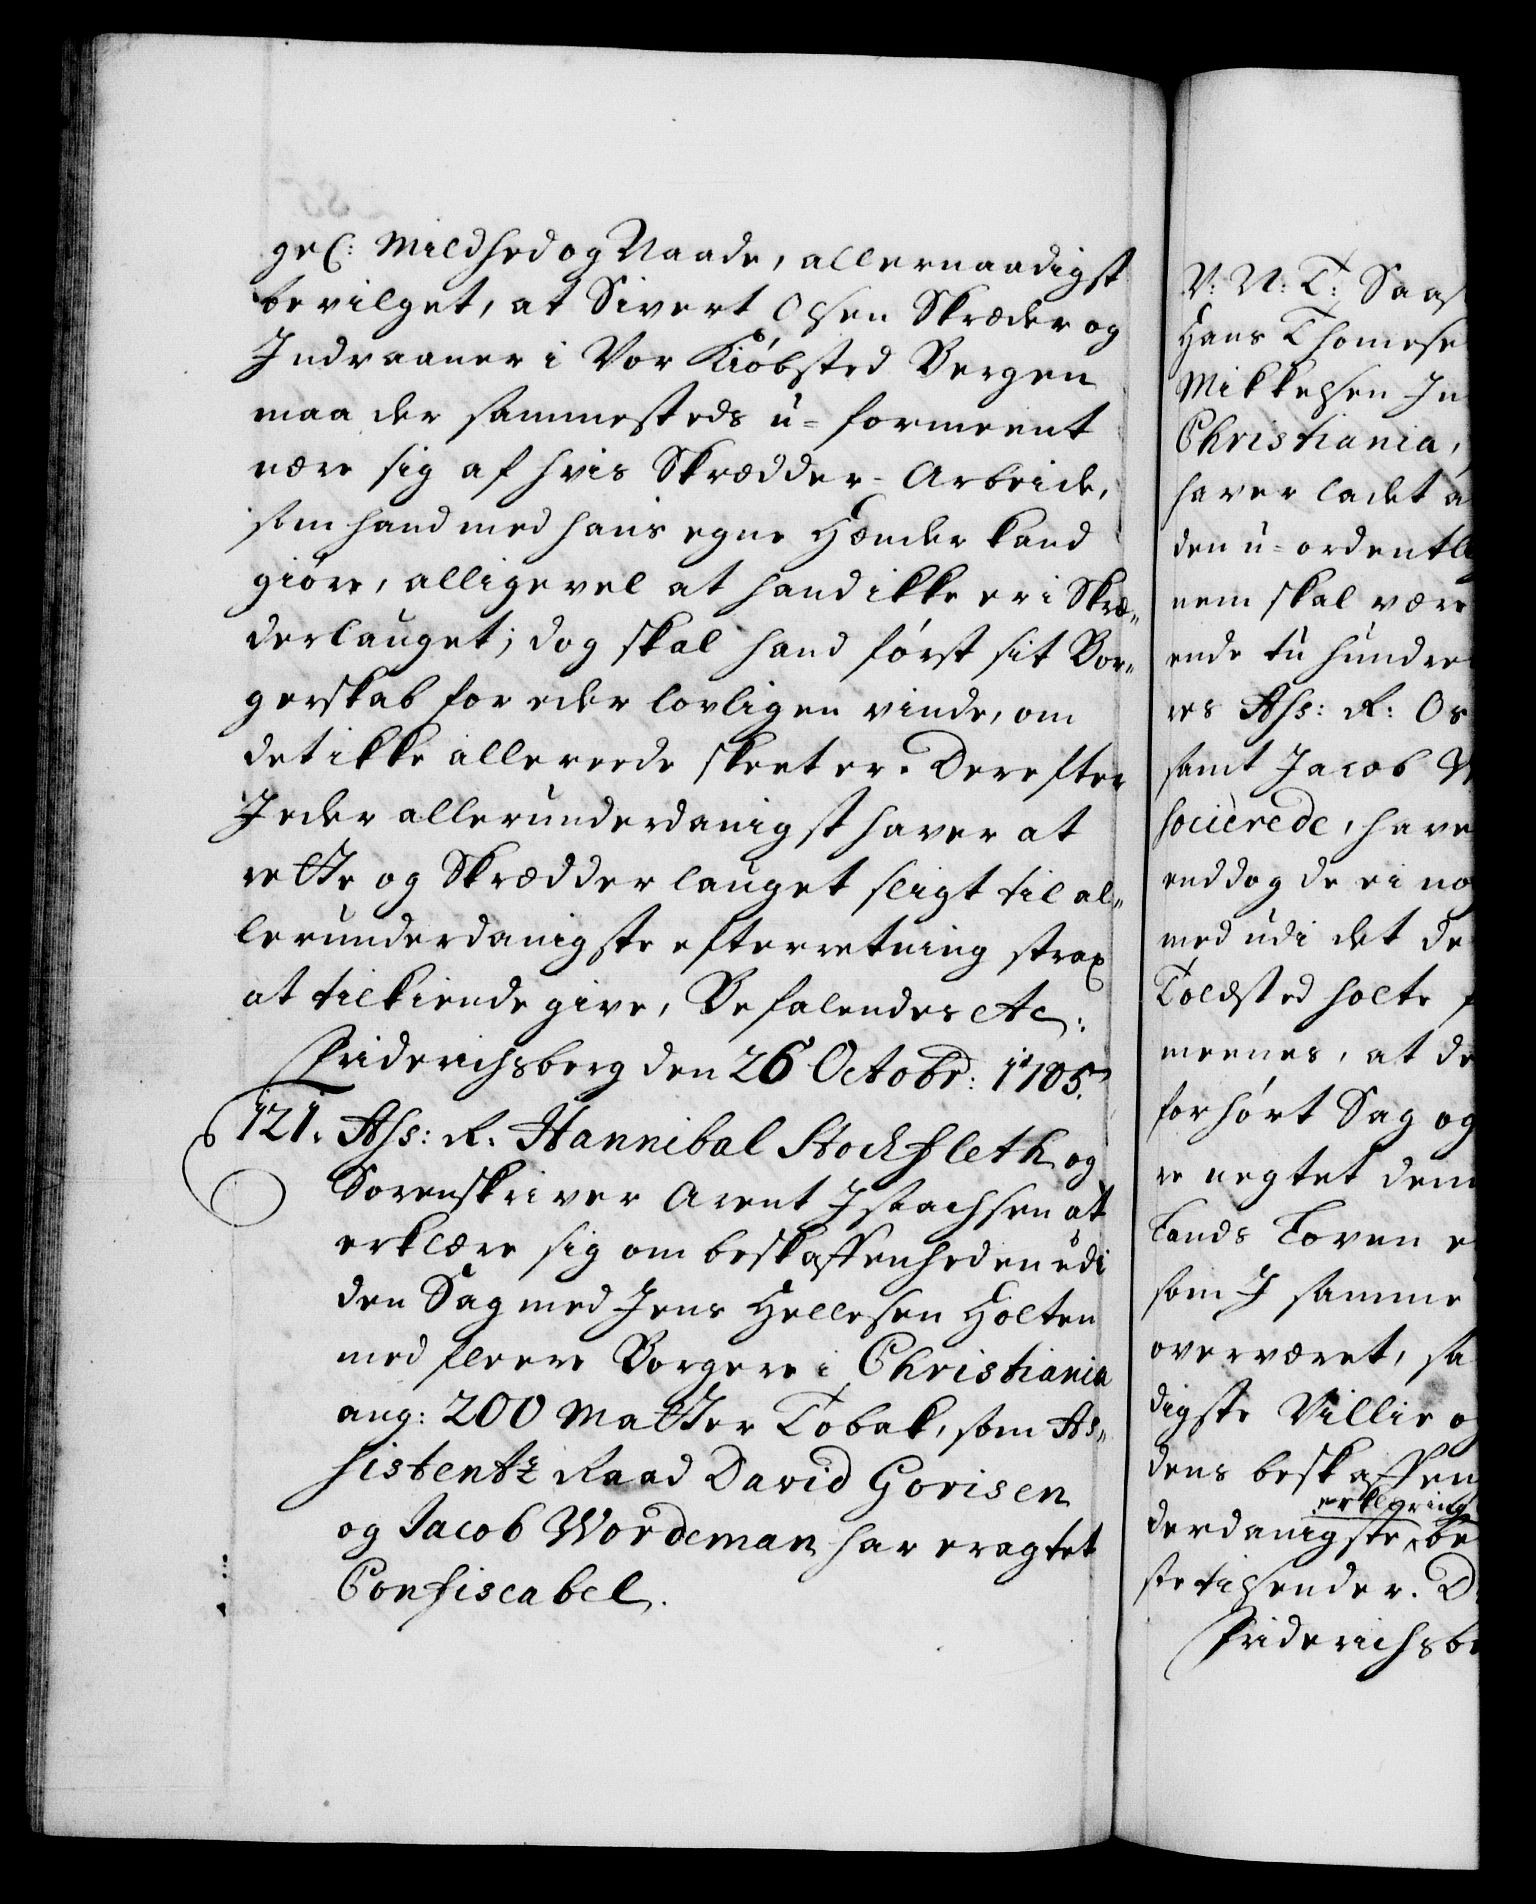 gel: Mildhed og Naade, allernaadigst
bevilget, at Sivert Olsen Skræder og
Indvaaner i Vor Kiöbsted Bergen
maa der sammesteds u-formeent
nære sig af hvis Skrædder-Arbeide,
som hand med hans egne Hænder kand
giöre, alligevel at hand ikke er i Skræ-
derlauget; dog skal hand först sit Bor-
gerskab for eder lovligen vinde, om
det ikke allereede skeet er. Derefter
I eder allerunderdanigst haver at
rette og Skrædderlauget sligt til al-
lerunderdanigste efterretning strax
at tilkiende give, Befalendes etc:
Friderichsberg den 26 Octobr: 1705.
121. Ass: R: Hannibal Stockfleth og
Sorenskriver Arent Isachsen at
erklære sig om beskaffenheden udi
den Sag med Jens Hellesen Holten
med fleere Borgere i Christiania
ang: 200 Matter Tobak, som As-
sistentz Raad David Gorisen
og Jacob Wordeman har eragtet
Confiscabel.
V: N: T: Saas
Hans Thomese
Mikkelsen In
Christiania,
haver ladet a
den u-ordentli
nem skal være
ende tu hundre
res Ass: R: Os
samt Jacob W
socierede, have
enddog de ei no
med udi det de
Toldsted holte
meenes, at de
forhört Sag og
re negtet dem
Lands Loven e
som I samme
overværet, sa
digste Villie o
dens beskaffen
erklæring
derdanigste be
ste tilsender. D
Friderichsbe